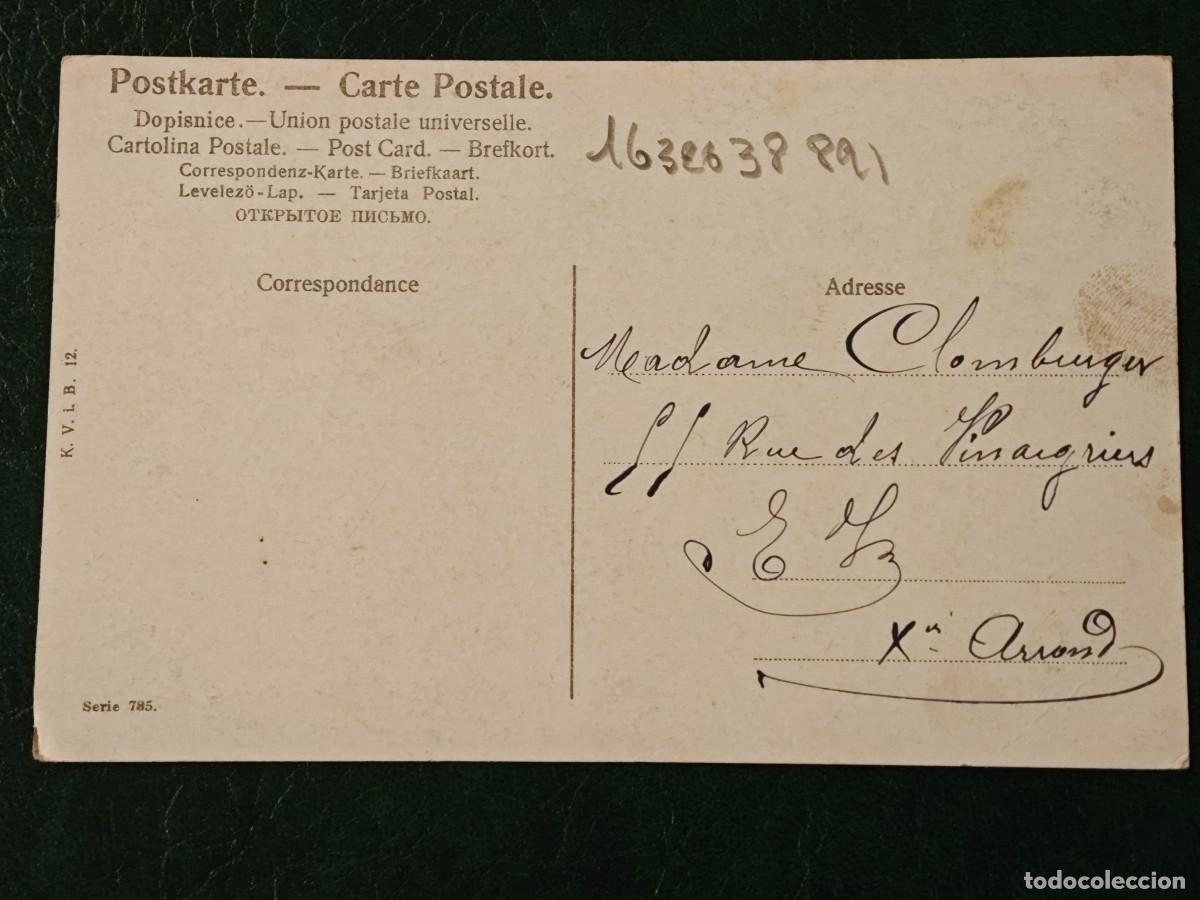 Postkarte. — Carte Postale.
Dopisnice.—Union postale universelle.
Cartolina Postale. — Post Card. — Brefkort.
Correspondenz-Karte. — Briefkaart.
Levelezö-Lap. — Tarjeta Postal.
ОТКРЫТОЕ ПИСЬМО.
Correspondance
K. V. i. B. 12.
Serie 785.
Adresse
Madame Clomburger
Rue des Vinaigriers
E V
Xe Arrond
todocoleccion